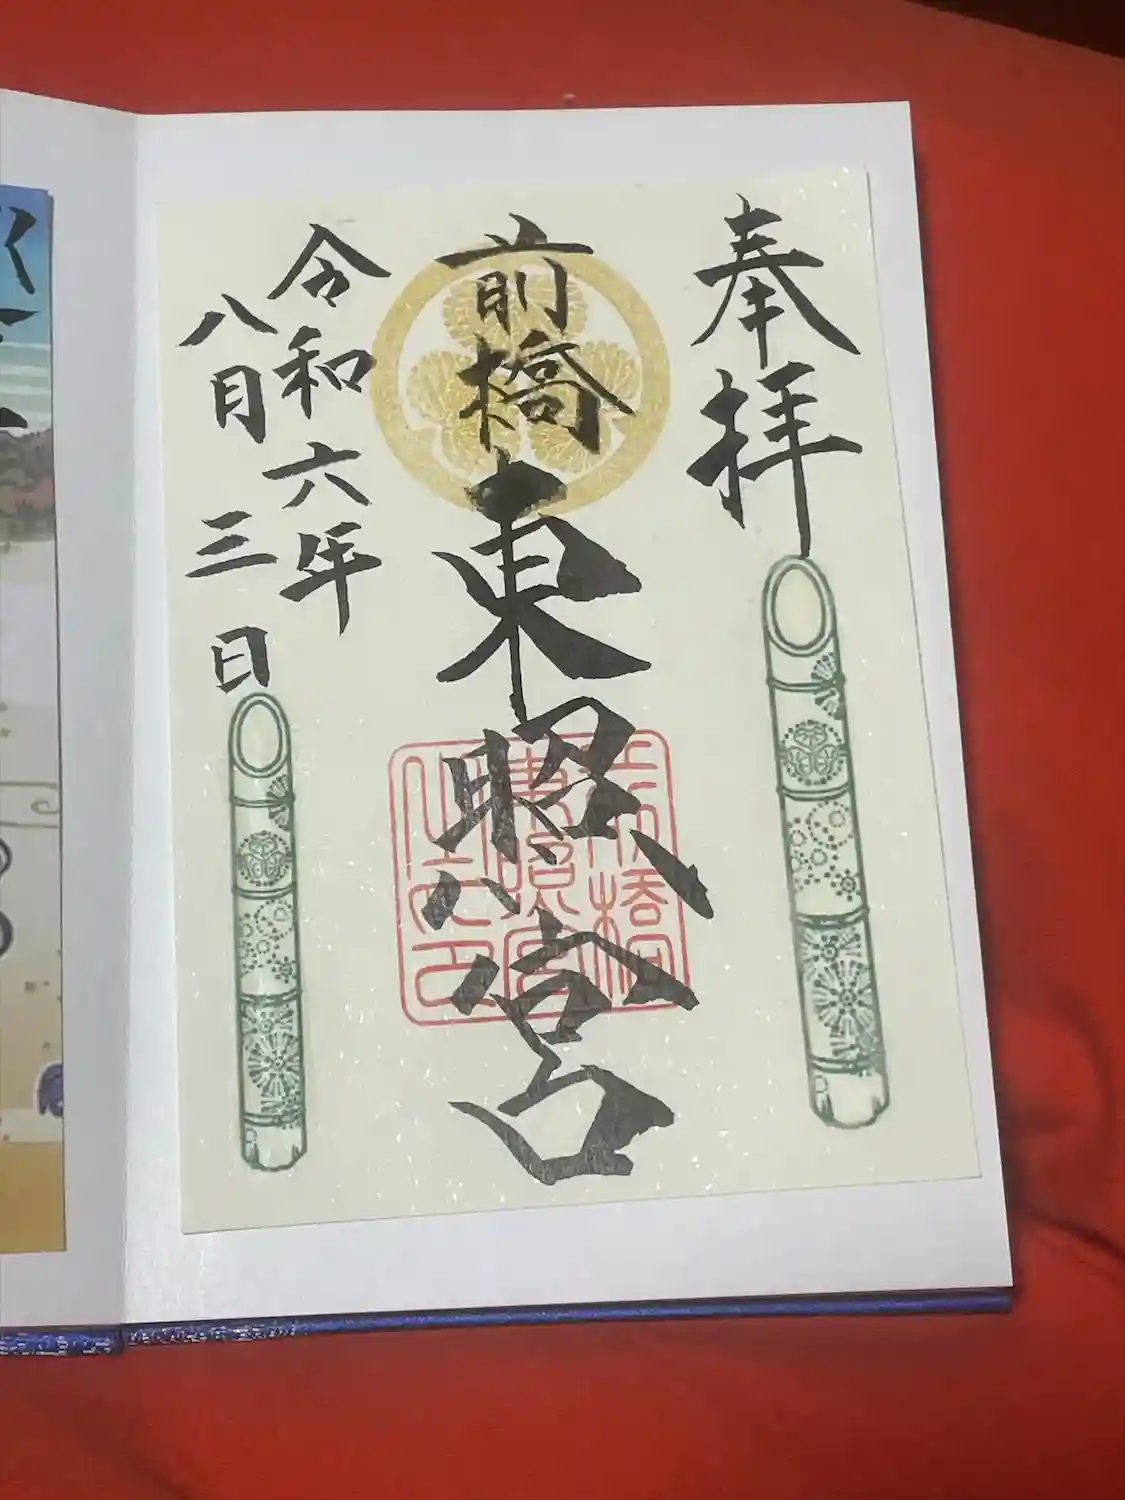 奉拝
前橋東照宮
前橋
東照宮
之印
令和六年
八月三日